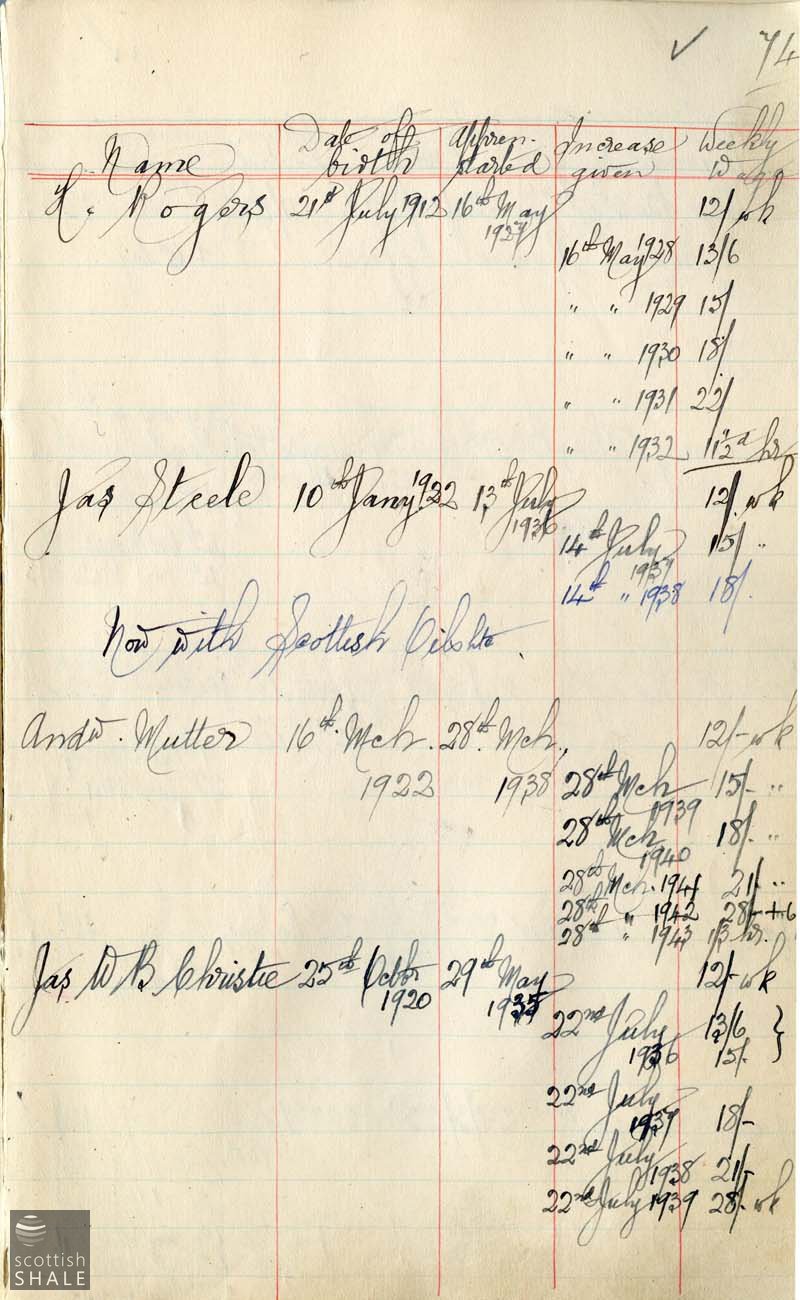 ✓ 74
Name Date of birth Appren. started Increase given Weekly Wage
H. Rogers 21st July 1912 16th May 1927 12/ wk
16th May 1928 13/6
" " 1929 15/
" " 1930 18/
" " 1931 22/
" " 1932 11½d hr
Jas Steele 10th Jany 1922 13th July 1936 12/ wk
14th July 1937 15/ "
14th " 1938 18/.
Now with Scottish Oils Ltd.
Andw. Mutter 16th Mch. 1922 28th Mch. 1938 12/- wk
28th Mch 1939 15/- "
28th Mch 1940 18/- "
28th Mch. 1941 21/- "
28th " 1942 28/- + 6
28th " 1943 1/3 hr.
Jas W B Christie 25th Octbr 1920 29th May 1935 12/- wk
22nd July 1936 13/6 }
15/- }
22nd July 1937 18/-
22nd July 1938 21/-
22nd July 1939 28/- wk
scottish
SHALE